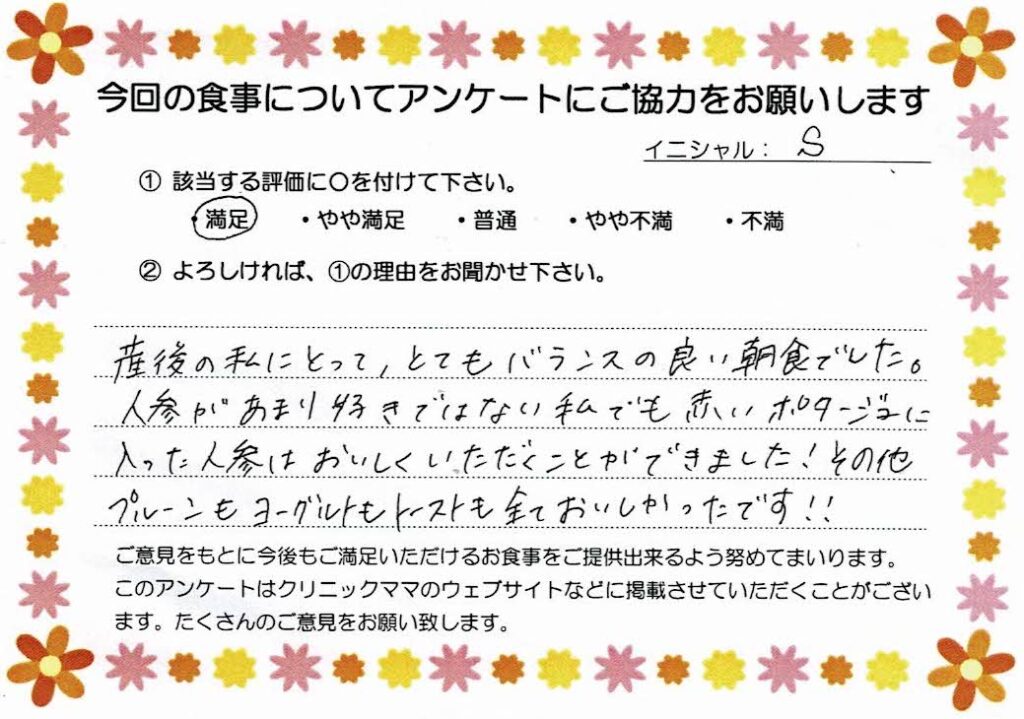 今回の食事についてアンケートにご協力をお願いします
イニシャル： S
① 該当する評価に〇を付けて下さい。
・満足 ・やや満足 ・普通 ・やや不満 ・不満
② よろしければ、①の理由をお聞かせ下さい。
産後の私にとって,とてもバランスの良い朝食でした。
人参があまり好きではない私でも赤いポタージュに
入った人参はおいしくいただくことができました!その他
プルーンもヨーグルトもトーストも全ておいしかったです!!
ご意見をもとに今後もご満足いただけるお食事をご提供出来るよう努めてまいります。
このアンケートはクリニックママのウェブサイトなどに掲載させていただくことがござい
ます。たくさんのご意見をお願い致します。